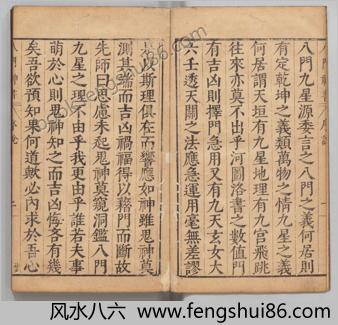 八門九星源委言之八門之義何居則
有定乾坤之義類萬物之情九星之義
何居謂天垣有九星地理有九宮飛跳
往來亦莫不出乎河圖洛書之數值門
有吉凶則擇門急用又有九天玄女大
六壬透天關之法應急運用毫無差謬
以斯理俱在而響應如神雖鬼神莫
測其端而吉凶禍福得以務門而斷故
先師曰思慮未起鬼神莫窺洞鑑八門
九星之理不由乎我更由乎誰若夫事
萌於心則鬼神知之而吉凶悔吝有幾
矣吾欲預知果何道歟必內求於吾心
风水八六 - www.fengshui86.com